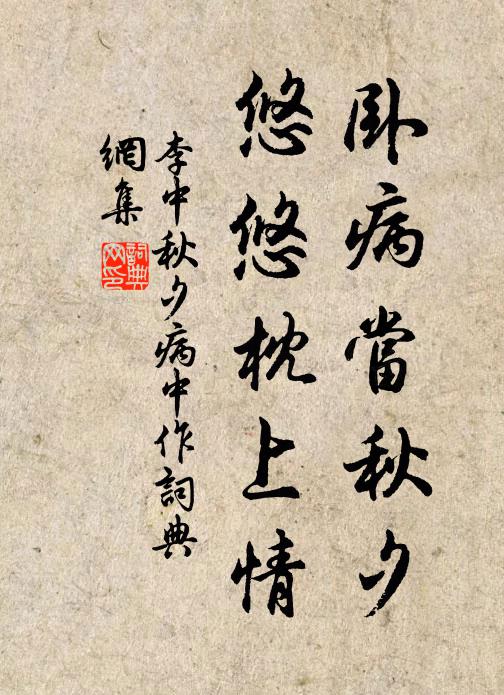 臥病當秋夕
悠悠枕上情
李中秋夕病中作詞典
網集
詞典
网印